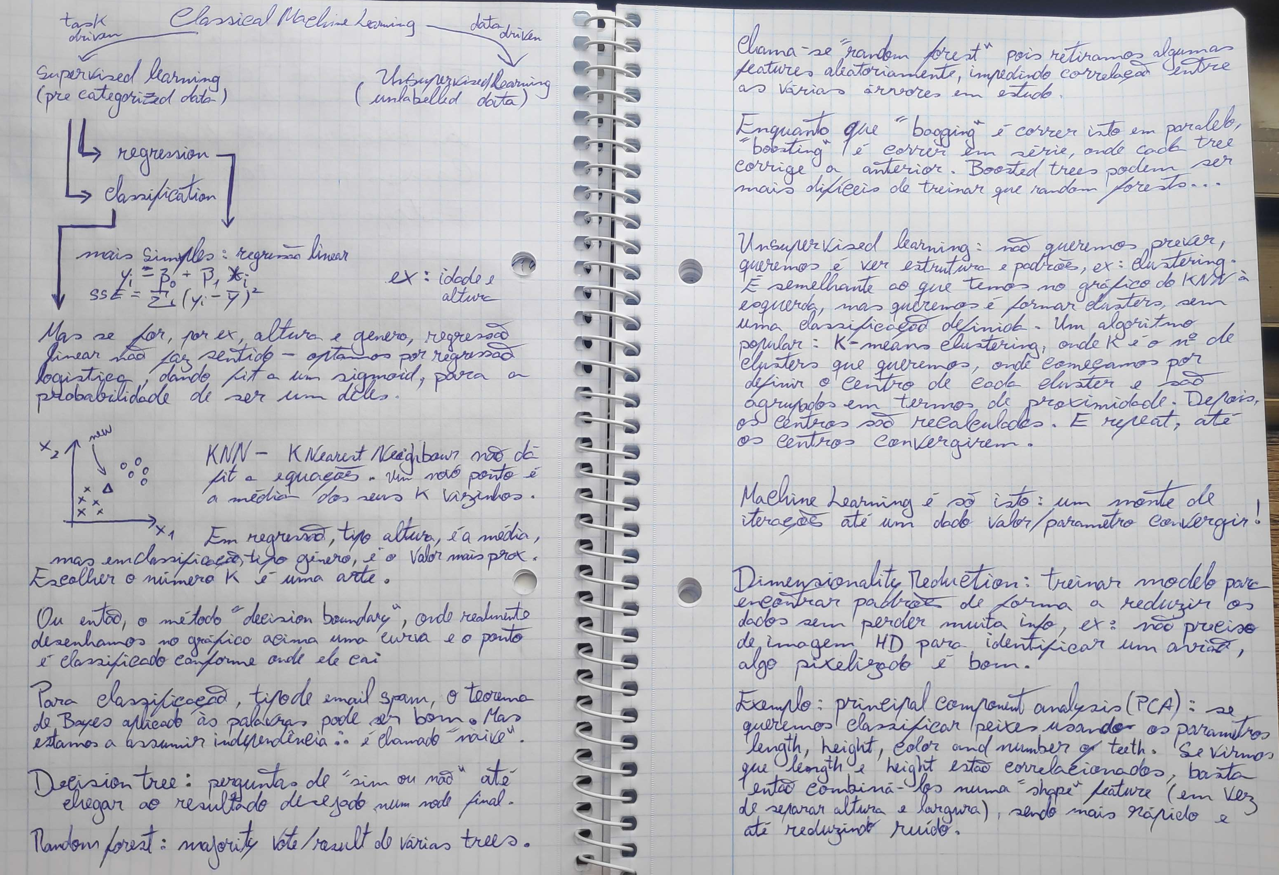 Classical Machine Learning
task driven
data driven
supervised learning
(pre categorized data)
Unsupervised Learning
(unlabelled data)
regression
classification
mais simples: regressão linear
yi = β0 + β1 xi
SSE = Σi (yi - ȳ)²
ex: idade e
altura
Mas se for, por ex, altura e genero, regressão
linear não faz sentido - optamos por regressão
logistica, dando fit a um sigmoid, para a
probabilidade de ser um deles.
x2
new
x1
KNN - K Nearest Neighbour não dá
fit a equações. Um novo ponto é
a média dos seus K vizinhos.
Em regressão, tipo altura, é a média,
mas em classificação, tipo género, é o valor mais prox.
Escolher o número K é uma arte.
Ou então, o método "decision boundary", onde realmente
desenhamos no gráfico acima uma curva e o ponto
é classificado conforme onde ele cai
Para classificação, tipo de email spam, o teorema
de Bayes aplicado às palavras pode ser bom. Mas
estamos a assumir independência ∴ é chamado "naive".
Decision tree: perguntas de "sim ou não" até
chegar ao resultado desejado num node final.
Random forest: majority vote/result de várias trees.
Chama-se "random forest" pois retiramos algumas
features aleatoriamente, impedindo correlação entre
as várias árvores em estudo.
Enquanto que "bagging" é correr isto em paralelo,
"boosting" é correr em série, onde cada tree
corrige a anterior. Boosted trees podem ser
mais difíceis de treinar que random forests...
Unsupervised learning: não queremos prever,
queremos é ver estrutura e padrões, ex: clustering.
É semelhante ao que temos no gráfico do KNN à
esquerda, mas queremos é formar clusters, sem
uma classificação definida. Um algoritmo
popular: K-means clustering, onde K é o nº de
clusters que queremos, onde começamos por
definir o centro de cada cluster e são
agrupados em termos de proximidade. Depois,
os centros são recalculados. E repeat, até
os centros convergirem.
Machine Learning é só isto: um monte de
iterações até um dado valor/parametro convergir!
Dimensionality Reduction: treinar modelo para
encontrar padrões de forma a reduzir os
dados sem perder muita info, ex: não preciso
de imagem HD para identificar um avião,
algo pixelizado é bom.
Exemplo: principal component analysis (PCA): se
queremos classificar peixes usando os parametros
length, height, color and number of teeth. Se virmos
que length e height estão correlacionados, basta
então combiná-los numa "shape" feature (em vez
de separar altura e largura), sendo mais rápido e
até reduzindo ruído.